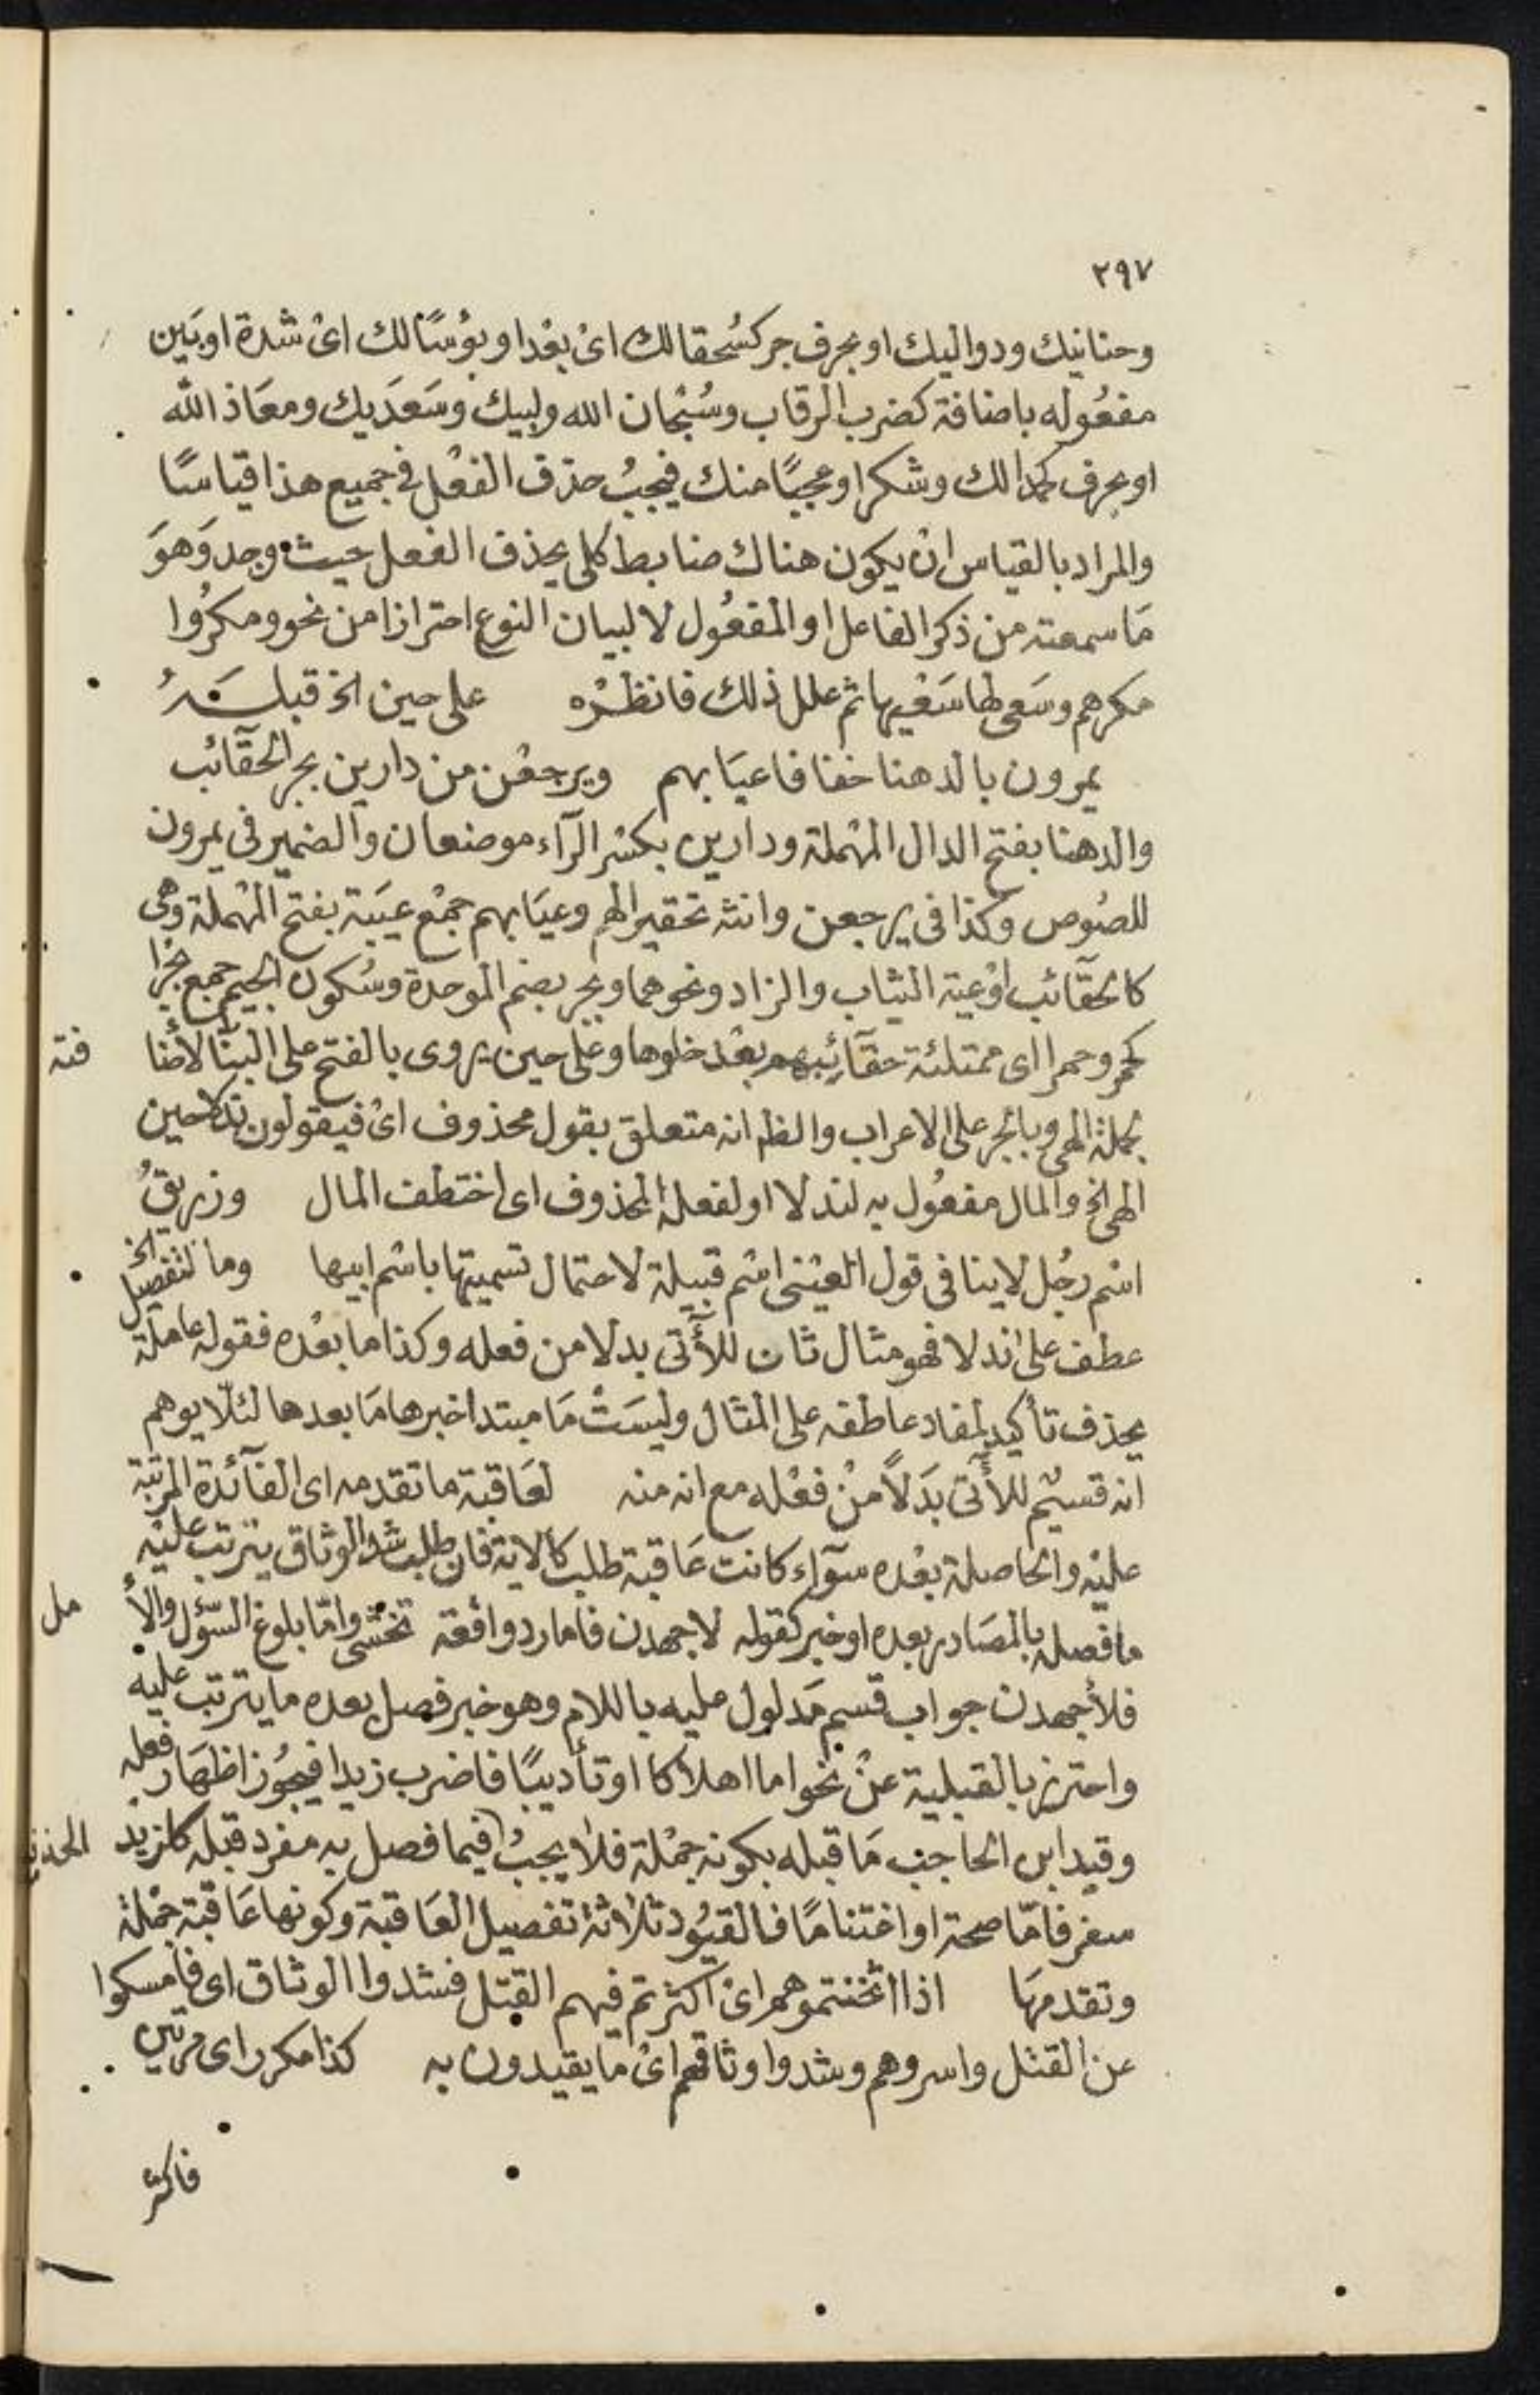 ٢٩٧
وحنانيك ودواليك او بحرف جر كسُحقا لك اىْ بعْدا وبؤسًا لك اىْ شدة او بَين
مفعُوله باضافة كضرب الرقاب وسُبْحان الله ولبيك وسَعَديك ومعَاذ الله
او بحرف كحمدا لك وشكرا وعجبًا منك فيجبُ حذف الفعْل فى جميع هذا قياسًا
والمراد بالقياس ان يكون هناك ضابط كلى يحذف الفعل حيث وجد وَهوَ
مَا سمعته من ذكر الفاعل او المفعُول لا لبيان النوع احترازا من نحو ومكرُوا
مكرهم وسَعى لها سَعْيها ثم علل ذلك فانظرْه على حين الخ قبلَهُ
يمرون بالدهنا خفنا فا عيَابهم ويرجعْن من دارين بجر الحقآئب
والدهنا بفتح الدال المهْملة ودارين بكسْر الرآء موضعان والضمير فى يمرون
للصُوص وكذا فى يرجعن وانثه تحقيرا لهم وعيَابهم جمْع عيَبة بفتح المهْملة وهى
كالحقآئب اوْعية الثياب والزاد ونحوهما وبجر بضم الموحدة وسُكون الجيم جمع بجرا
كحمر وحمرا اى ممتلئة حقآئبهم بعْد خلوها وعَلى حين يروى بالفتح على البنآ لاضا
فته
بجملة الهى وبالجر على الاعراب والظ انه متعلق بقول محذوف اىْ فيقولون ندلا حين
الهى الخ والمال مفعُول به لندلا او لفعله المحذوف اى اختطف المال وزريقُ
اسْم رجُل لا ينافى قول العيْنى اسْم قبيلة لاحتمال تسميتها باسْم ابيها وما لتفصيل الخ
عطف على ندلا فهو مثال ثان للآتى بدلا من فعله وكذا ما بعْده فقوله عامله
يحذف تأكيد لمفاد عاطفه على المثال وليسَتْ مَا مبتدا خبرها مَا بعدها لئلّا يوهم
انه قسيْم للآتى بَدَلاً منْ فعْله مع انه منه لعَاقبة ما تقدمه اى الفآئدة المرتبة
عليْه والحاصلة بعْده سوآء كانت عَاقبة طلب كالاية فان طلب شد الوثاق يترتب عليْه
ما فصله بالمصَادر بعده او خبر كقوله لاجهدن فاما رد واقعة تخشى وامّا بلوغ السّؤل والأ
مل
فلأجهدن جواب قسم مَدلول عليه باللام وهو خبر فصل بعده ما يترتب عليه
واحترز بالقبلية عنْ نحو اما اهلاكا او تأديبًا فاضرب زيدا فيجوُز اظهَار فعله
وقيد ابن الحاجب مَا قبله بكونه جمْلة فلا يجبُ فيما فصل به مفرد قبله كلزيد
الحذف
سفر فامّا صحة او اغتنامًا فالقيُود ثلاثة تفصيل العَاقبة وكونها عَاقبة جمْلة
وتقدمهَا اذا اثخنتموهم اىْ اكثرتم فيهم القتل فشدوا الوثاق اى فأمسكوا
عن القتل واسروهم وشدوا وثاقهم اىْ مَا يقيدون به كذا مكرر اى مرتين
فاكثر